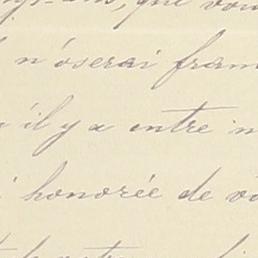 que vou
n'oserai fran
'il y a entre n
honorée de v